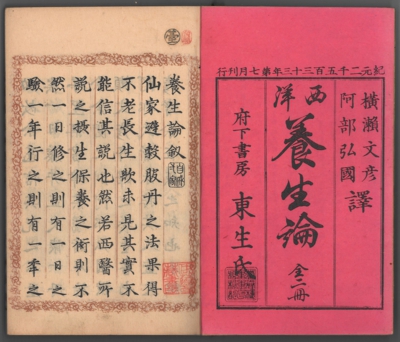 紀元二千五百三十三年第七月刊行
橫瀨文彦
阿部弘國
譯
西洋
養生論
全二冊
府下書房
東生氏
養生論敘
仙家避穀服丹之法果得
不老長生歟未見其實不
能信其説也然若西醫所
説之攝生保養之術則不
然一日修之則有一日之
驗一年行之則有一年之